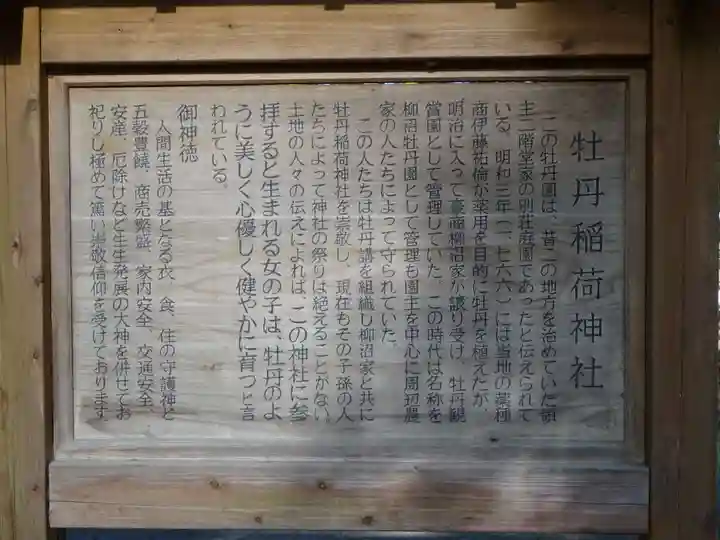 牡丹稲荷神社
この牡丹園は、昔この地方を治めていた領
主二階堂家の別荘庭園であったと伝えられて
いる。明和三年（一、七六六）には当地の薬種
商伊藤祐倫が薬用を目的に牡丹を植えたが、
明治に入って豪商柳沼家が譲り受け、牡丹観
賞園として管理していた。この時代は名称を
柳沼牡丹園として管理も園主を中心に周辺農
家の人たちによって守られていた。
この人たちは牡丹講を組織し柳沼家と共に
牡丹稲荷神社を崇敬し、現在もその子孫の人
たちによって神社の祭りは絶えることがない。
土地の人々の伝えによれば、この神社に参
拝すると生まれる女の子は、牡丹のよ
うに美しく心優しく健やかに育つと言
われている。
御神徳
人間生活の基となる衣、食、住の守護神と
五穀豊饒、商売繁盛、家内安全、交通安全、
安産、厄除けなど生生発展の大神を併せてお
祀りし極めて篤い崇敬信仰を受けております